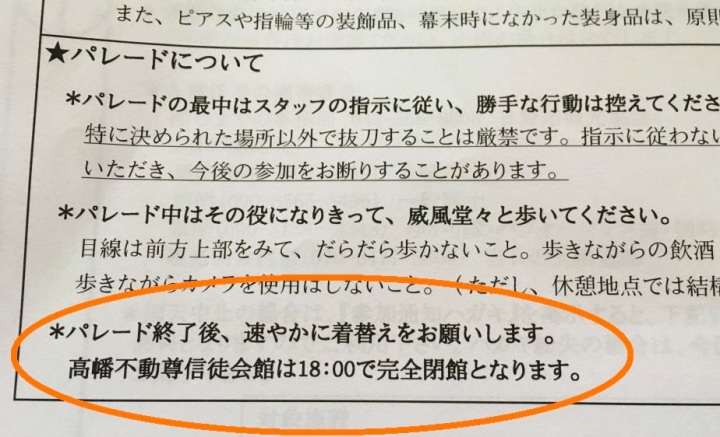 また、ピアスや指輪等の装飾品、幕末時になかった装身品は、原則
★パレードについて
＊パレードの最中はスタッフの指示に従い、勝手な行動は控えてくださ
特に決められた場所以外で抜刀することは厳禁です。指示に従わない
いただき、今後の参加をお断りすることがあります。
＊パレード中はその役になりきって、威風堂々と歩いてください。
目線は前方上部をみて、だらだら歩かないこと。歩きながらの飲酒
歩きながらカメラを使用はしないこと。（ただし、休憩地点では結構
＊パレード終了後、速やかに着替えをお願いします。
高幡不動尊信徒会館は18:00で完全閉館となります。